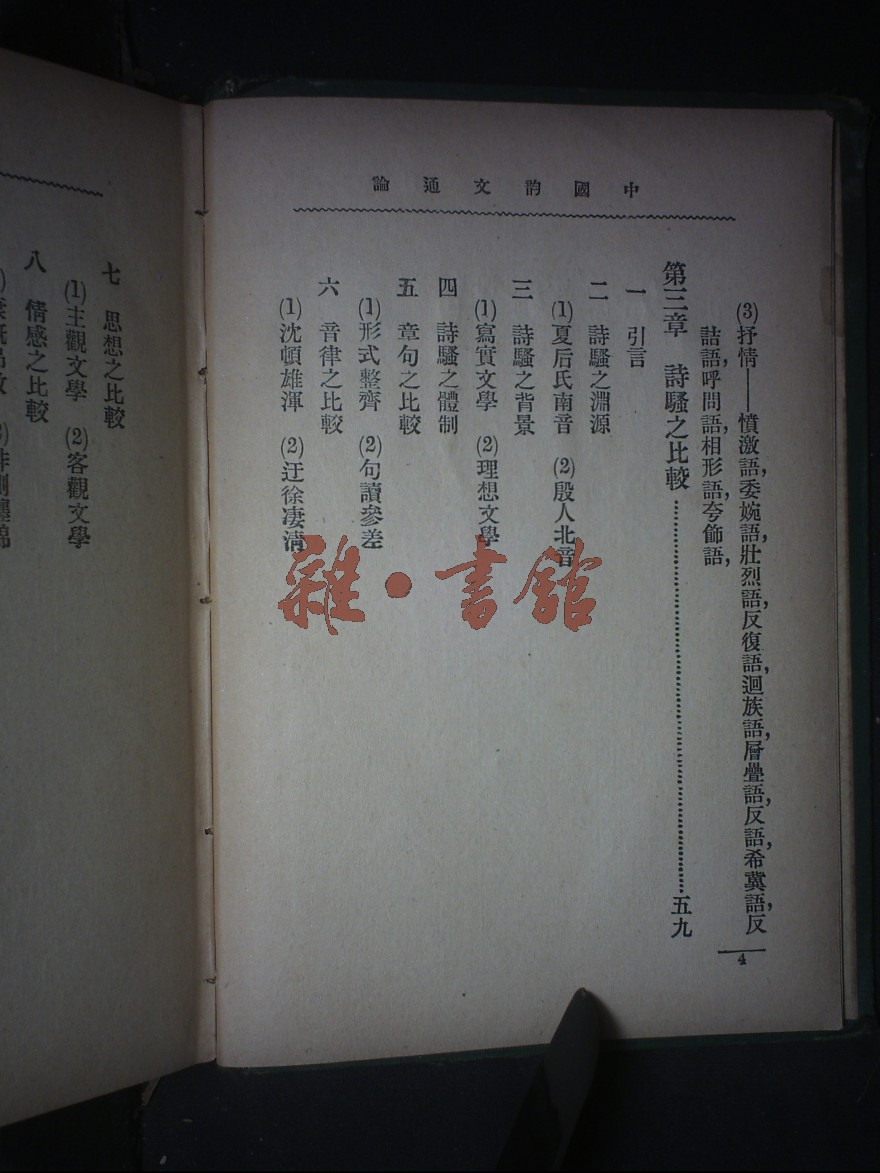 中國韵文通論
(3)抒情——憤激語，委婉語，壯烈語，反復語，迴族語，層疊語，反語，希冀語，反
詰語，呼問語，相形語，夸飾語，
4
第三章　詩騷之比較……五九
一　引言
二　詩騷之淵源
(1)夏后氏南音　(2)殷人北音
三　詩騷之背景
(1)寫實文學　(2)理想文學
四　詩騷之體制
五　章句之比較
(1)形式整齊　(2)句讀參差
六　音律之比較
(1)沈頓雄渾　(2)迂徐凄清
七　思想之比較
(1)主觀文學　(2)客觀文學
八　情感之比較
雜·書館